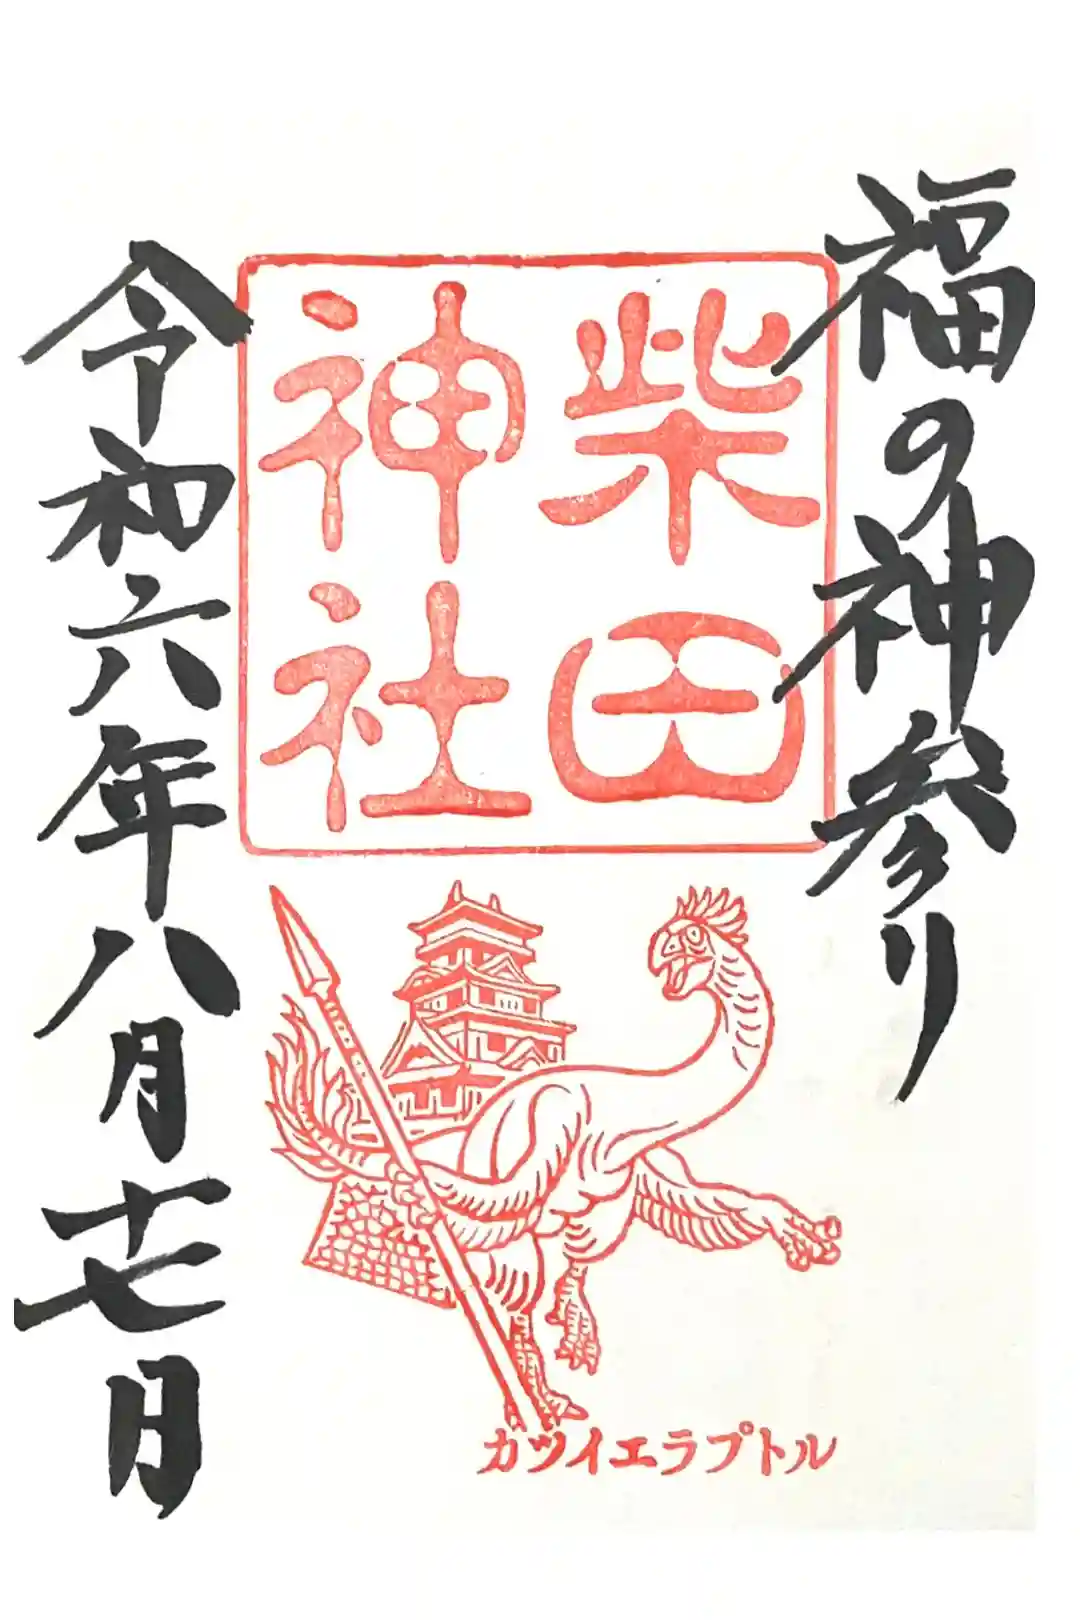 福の神参り
柴田
神社
カツイエラプトル
令和六年八月十七日